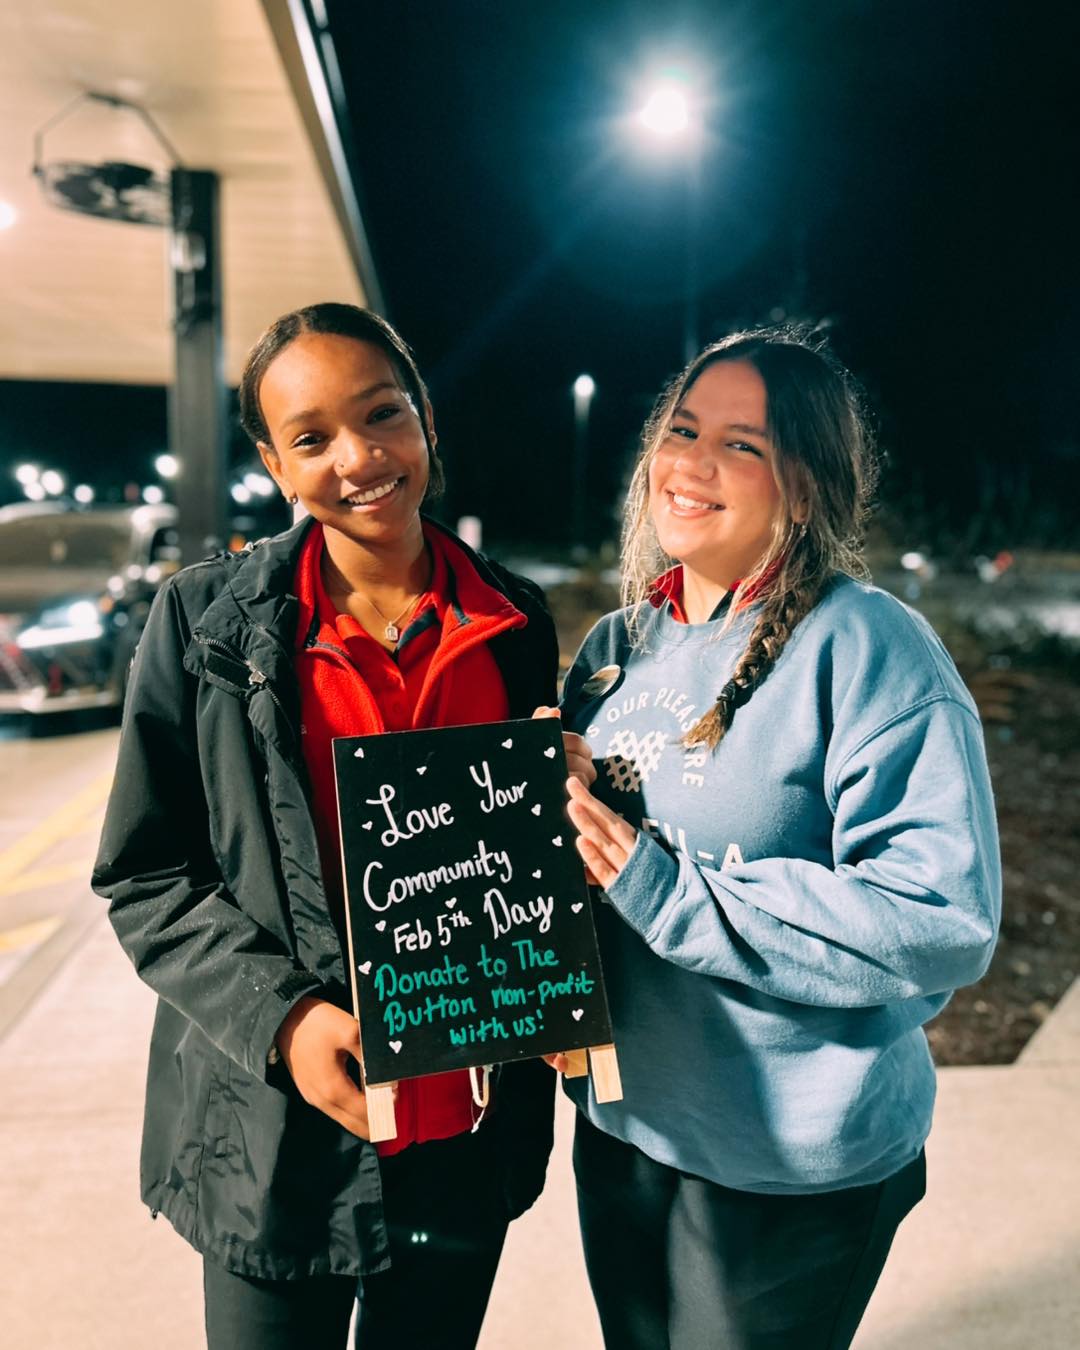 Love Your
Community
Feb 5th Day
Donate to The
Button non-profit
with us!
OUR PLEASURE
-A